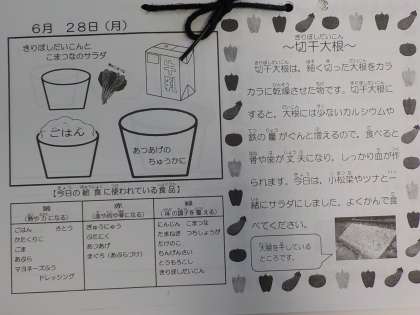 6月 28日(月)
きりぼしだいこんと
こまつなのサラダ
ごはん
あつあげの
ちゅうかに
【今日の給食に使われている食品】
黄
(熱や力になる)
ごはん さとう
かたくりこ
ごま
あぶら
マヨネーズふう
ドレッシング
赤
(血や肉や骨になる)
ぎゅうにゅう
ぶたにく
あつあげ
まぐろ(あぶらづけ)
緑
(体の調子を整える)
にんじん こまつな
たまねぎ つちしょうが
たけのこ
ちんげんさい
とうもろこし
きりぼしだいこん
きりぼしだいこん
~切干大根~
切干大根は、細く切った大根をカラ
カラに乾燥させた物です。切干大根に
すると、大根には少ないカルシウムや
鉄の量がぐんと増えるので、食べると
骨や歯が丈夫になり、しっかり血が作
られます。今日は、小松菜やツナと一
緒にサラダにしました。よくかんで食
べてください。
大根を干している
ところです。